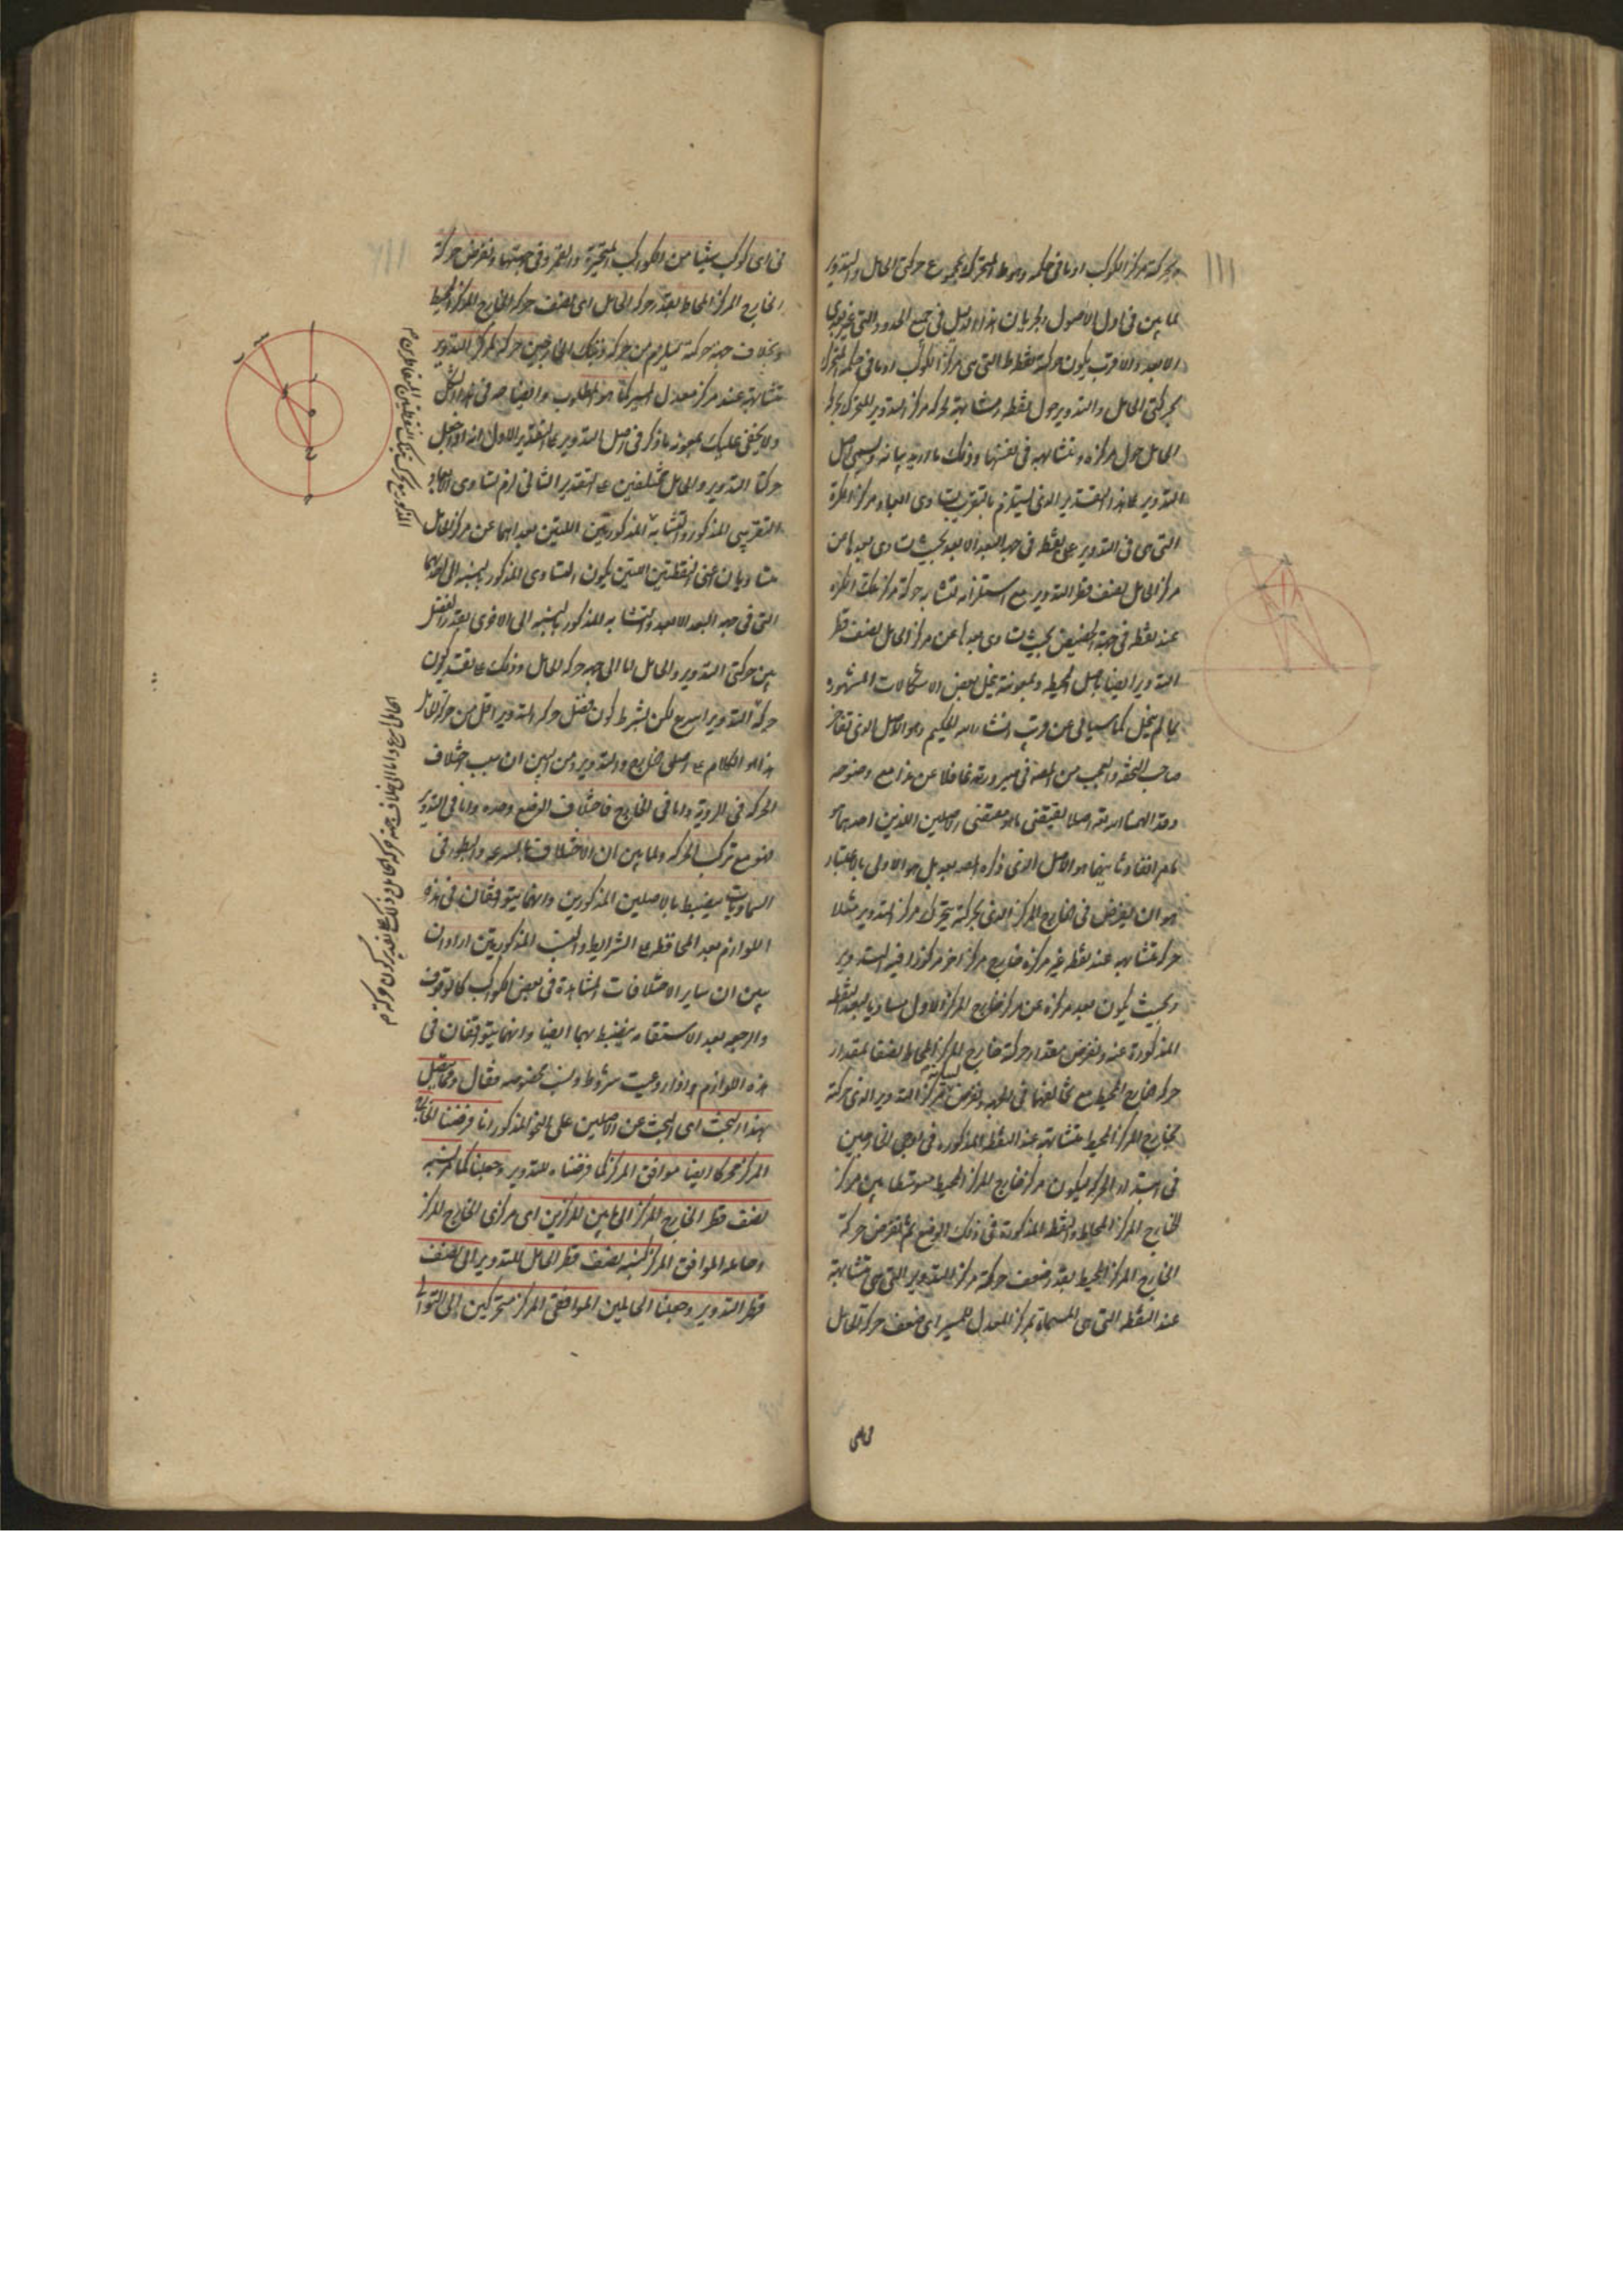 ١١١
بحركة مركز الكوكب او ما فى حكمه وهو المتحرك بمجموع حركتى الحامل والتدوير
لما بين فى اول الاصول ولجريان هذا الاصل فى جميع الحدود التى غير بعدى
الابعد والاقرب يكون حركة النقطة التى هى مركز الكوكب او ما فى حكمه المتحرك
بحركتى الحامل والتدوير حول نقطة متشابهة لحركة مركز التدوير المتحرك بحركة
الحامل حول مركزه ومتشابهة فى نفسها وذلك ما اريد بيانه ويسمى اصل
التدوير على هذا التقدير الذى يستلزم بالتقريب تساوى ابعاد مركز الكرة
التى هى فى التدوير عن نقطة فى جهة البعد الابعد بحيث تساوى بعدها من
مركز الحامل نصف قطر التدوير مع استلزامه تشابه حركة مركز تلك الكرة
عند نقطة فى جهة الحضيض بحيث تساوى بعدها عن مركز الحامل نصف قطر
التدوير ايضا باصل المحيطة وبمعونته ينحل بعض الاشكالات المشهورة
مما لم ينحل كما سيأتى عن قريب انشاء الله الحكيم وهو الاصل الذى تفاخر
صاحب التحفة والعجب من المصنف فى صيرورته غافلا عن هذا مع وضوحه
وقد الهمنا الله تعالى اصلا يقتضى ما هو مقتضى الاصلين اللذين احدهما
هو ان يفرض فى الخارج المركز الذى بحركته يتحرك مركز التدوير مثلا
حركة متشابهة عند نقطة غير مركزه خارج مركز اخر مركوزا فيه التدوير
وبحيث يكون بعد مركزه عن مركز خارج المركز الاول مساويا لبعد النقطة
المذكورة عنه ويفرض مقدار حركة خارج المركز المحاط نصفا لمقدار
حركة خارج المحيط مع مخالفتها فى الجهة ويفرض حركة مركز التدوير الذى حركته
بخارج المركز المحيط متشابهة عند النقطة المذكورة فى اوجى الخارجين
فى ابتداء الحركة ليكون مركز خارج المركز المحيط متوسطا بين مركز
الخارج المركز المحاط والنقطة المذكورة فى ذلك الوضع ثم يفرض حركة
الخارج المركز المحيط بقدر ضعف حركة مركز التدوير التى هى متشابهة
عند النقطة التى هى المسماة بمركز المعدل للمسير اى ضعف حركة الحامل
فى اى كوكب شئنا من الكواكب المتحيرة والقمر وفى جهتها ويفرض حركة
الخارج المركز المحاط بقدر حركة الحامل اى نصف حركة الخارج المركز المحيط
وبخلاف جهة حركته فيلزم من حركة ذينك الخارجين حركة لمركز التدوير
متشابهة عند مركز معدل المسير كما هو المطلوب
ولا يخفى عليك بمعونة ما ذكر فى اصل التدوير على التقدير الاول انه اذا جعل
حركتا التدوير والحامل مختلفين على التقدير الثانى لزم تساوى الابعاد
التقريبى المذكور والتشابه المذكورين اللتين بعداهما عن مركز الحامل
متساويان اعنى النقطتين اللتين يكون التساوى المذكور بالنسبة الى احدهما
التى فى جهة البعد الابعد والتشابه المذكور بالنسبة الى الاخرى بقدر الفضل
بين حركتى التدوير والحامل اما الى جهة حركة الحامل وذلك على تقدير كون
حركة التدوير اسرع لكن بشرط كون فضل حركة التدوير اقل من حركة الحامل
هذا هو الكلام على اصلى الخارج والتدوير ومن البين ان سبب اختلاف
الحركة فى الرؤية اما فى الخارج فاختلاف الوضع وحده واما فى التدوير
فهو مع تركب الحركة ولما بين ان الاختلاف بالسرعة والبطؤ فى
السماويات ينضبط بالاصلين المذكورين وانهما يتوافقان فى هذه
اللوازم بعد المحافظة على الشرايط والنسب المذكورتين اراد ان
يبين ان ساير الاختلافات المشاهدة فى بعض الكواكب كالوقوف
والرجعة بعد الاستقامة ينضبط بهما ايضا وانهما يتوافقان فى
هذه اللوازم اذا روعيت شروط ونسب مخصوصة فقال ومما يتصل
بهذا البحث اى البحث عن الاصلين على النحو المذكور انا فرضنا الخارج
المركز محركا ايضا موافق المركز كما فرضناه للتدوير وجعلنا كما لنسبة
نصف قطر الخارج المركز الى ما بين المركزين اى مركزى الخارج المركز
وحامله الموافق المركز كنسبة نصف قطر الحامل للتدوير الى نصف
قطر التدوير وجعلنا الحاملين الموافقى المركز متحركين الى التوالى